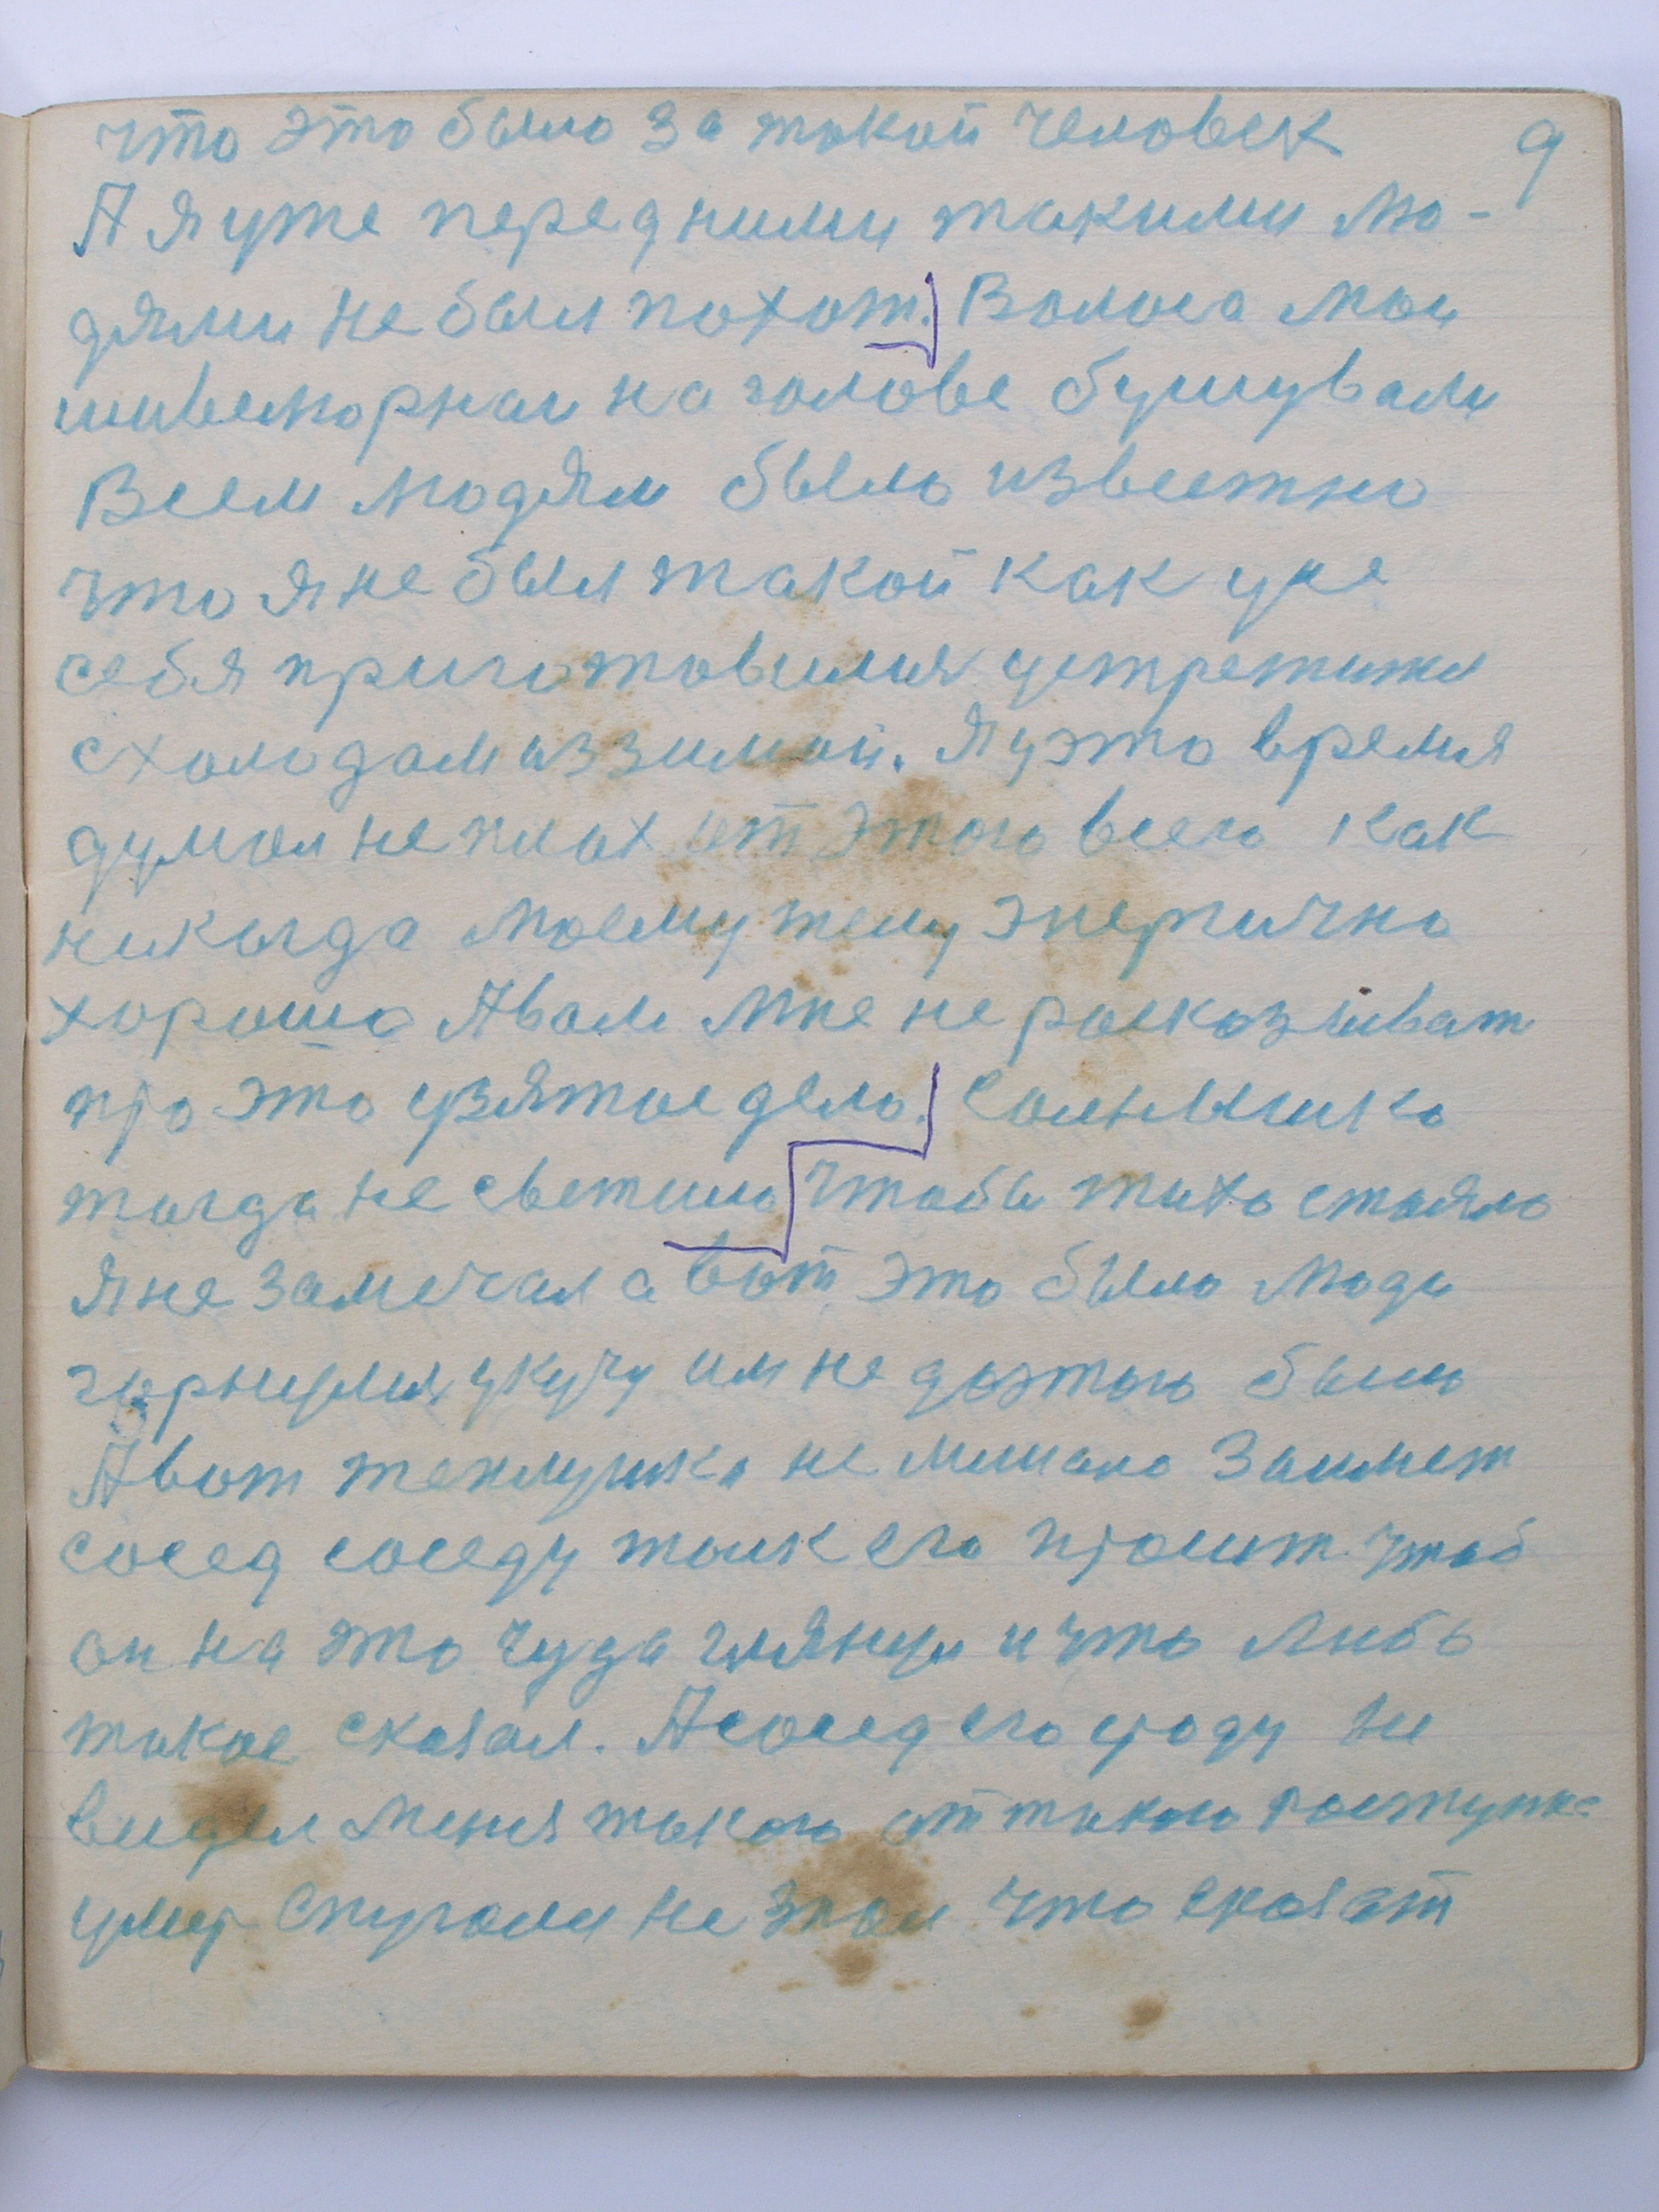 что это было за такой человек 9
А я уже перед ними такими лю-
дями не был похож. Волоса мои
шивелюрнаи на голове бушували
Всем людям было известно
что я не был такой как уже
себя приготовился устретится
с холодам из зимой. Я у это время
думал не плох от этого всего как
никогда моему телу энергично
хорошо А вам мне не росказыват
про это узятое дело. Солнышко
тогда не светило чтобы тихо стояло
Я не замечал а вот это было люди
гурнулися у кучу им не до этого было
А вот теплушка не мишало Заимет
сосед соседу толк его просит чтоб
он на это чуда глянул и что либо
такое сказал. А сосед его сроду не
видел меня такого от такого поступка
умер Спугали не знаи что сказат